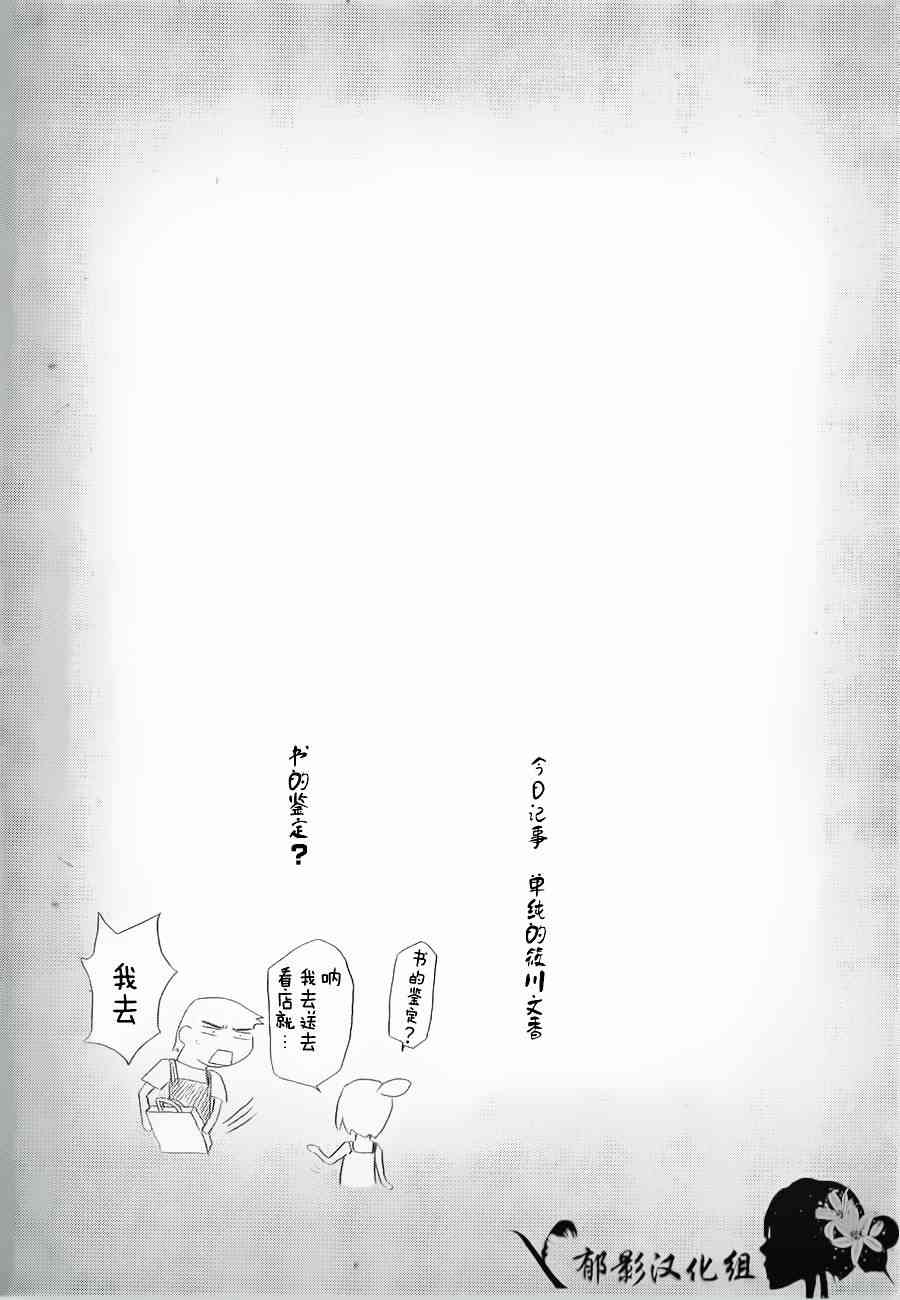 今日记事 单纯的筱川文香
书的鉴定?
书的鉴定?
呐
我去送去
看店就…
我去
郁影汉化组